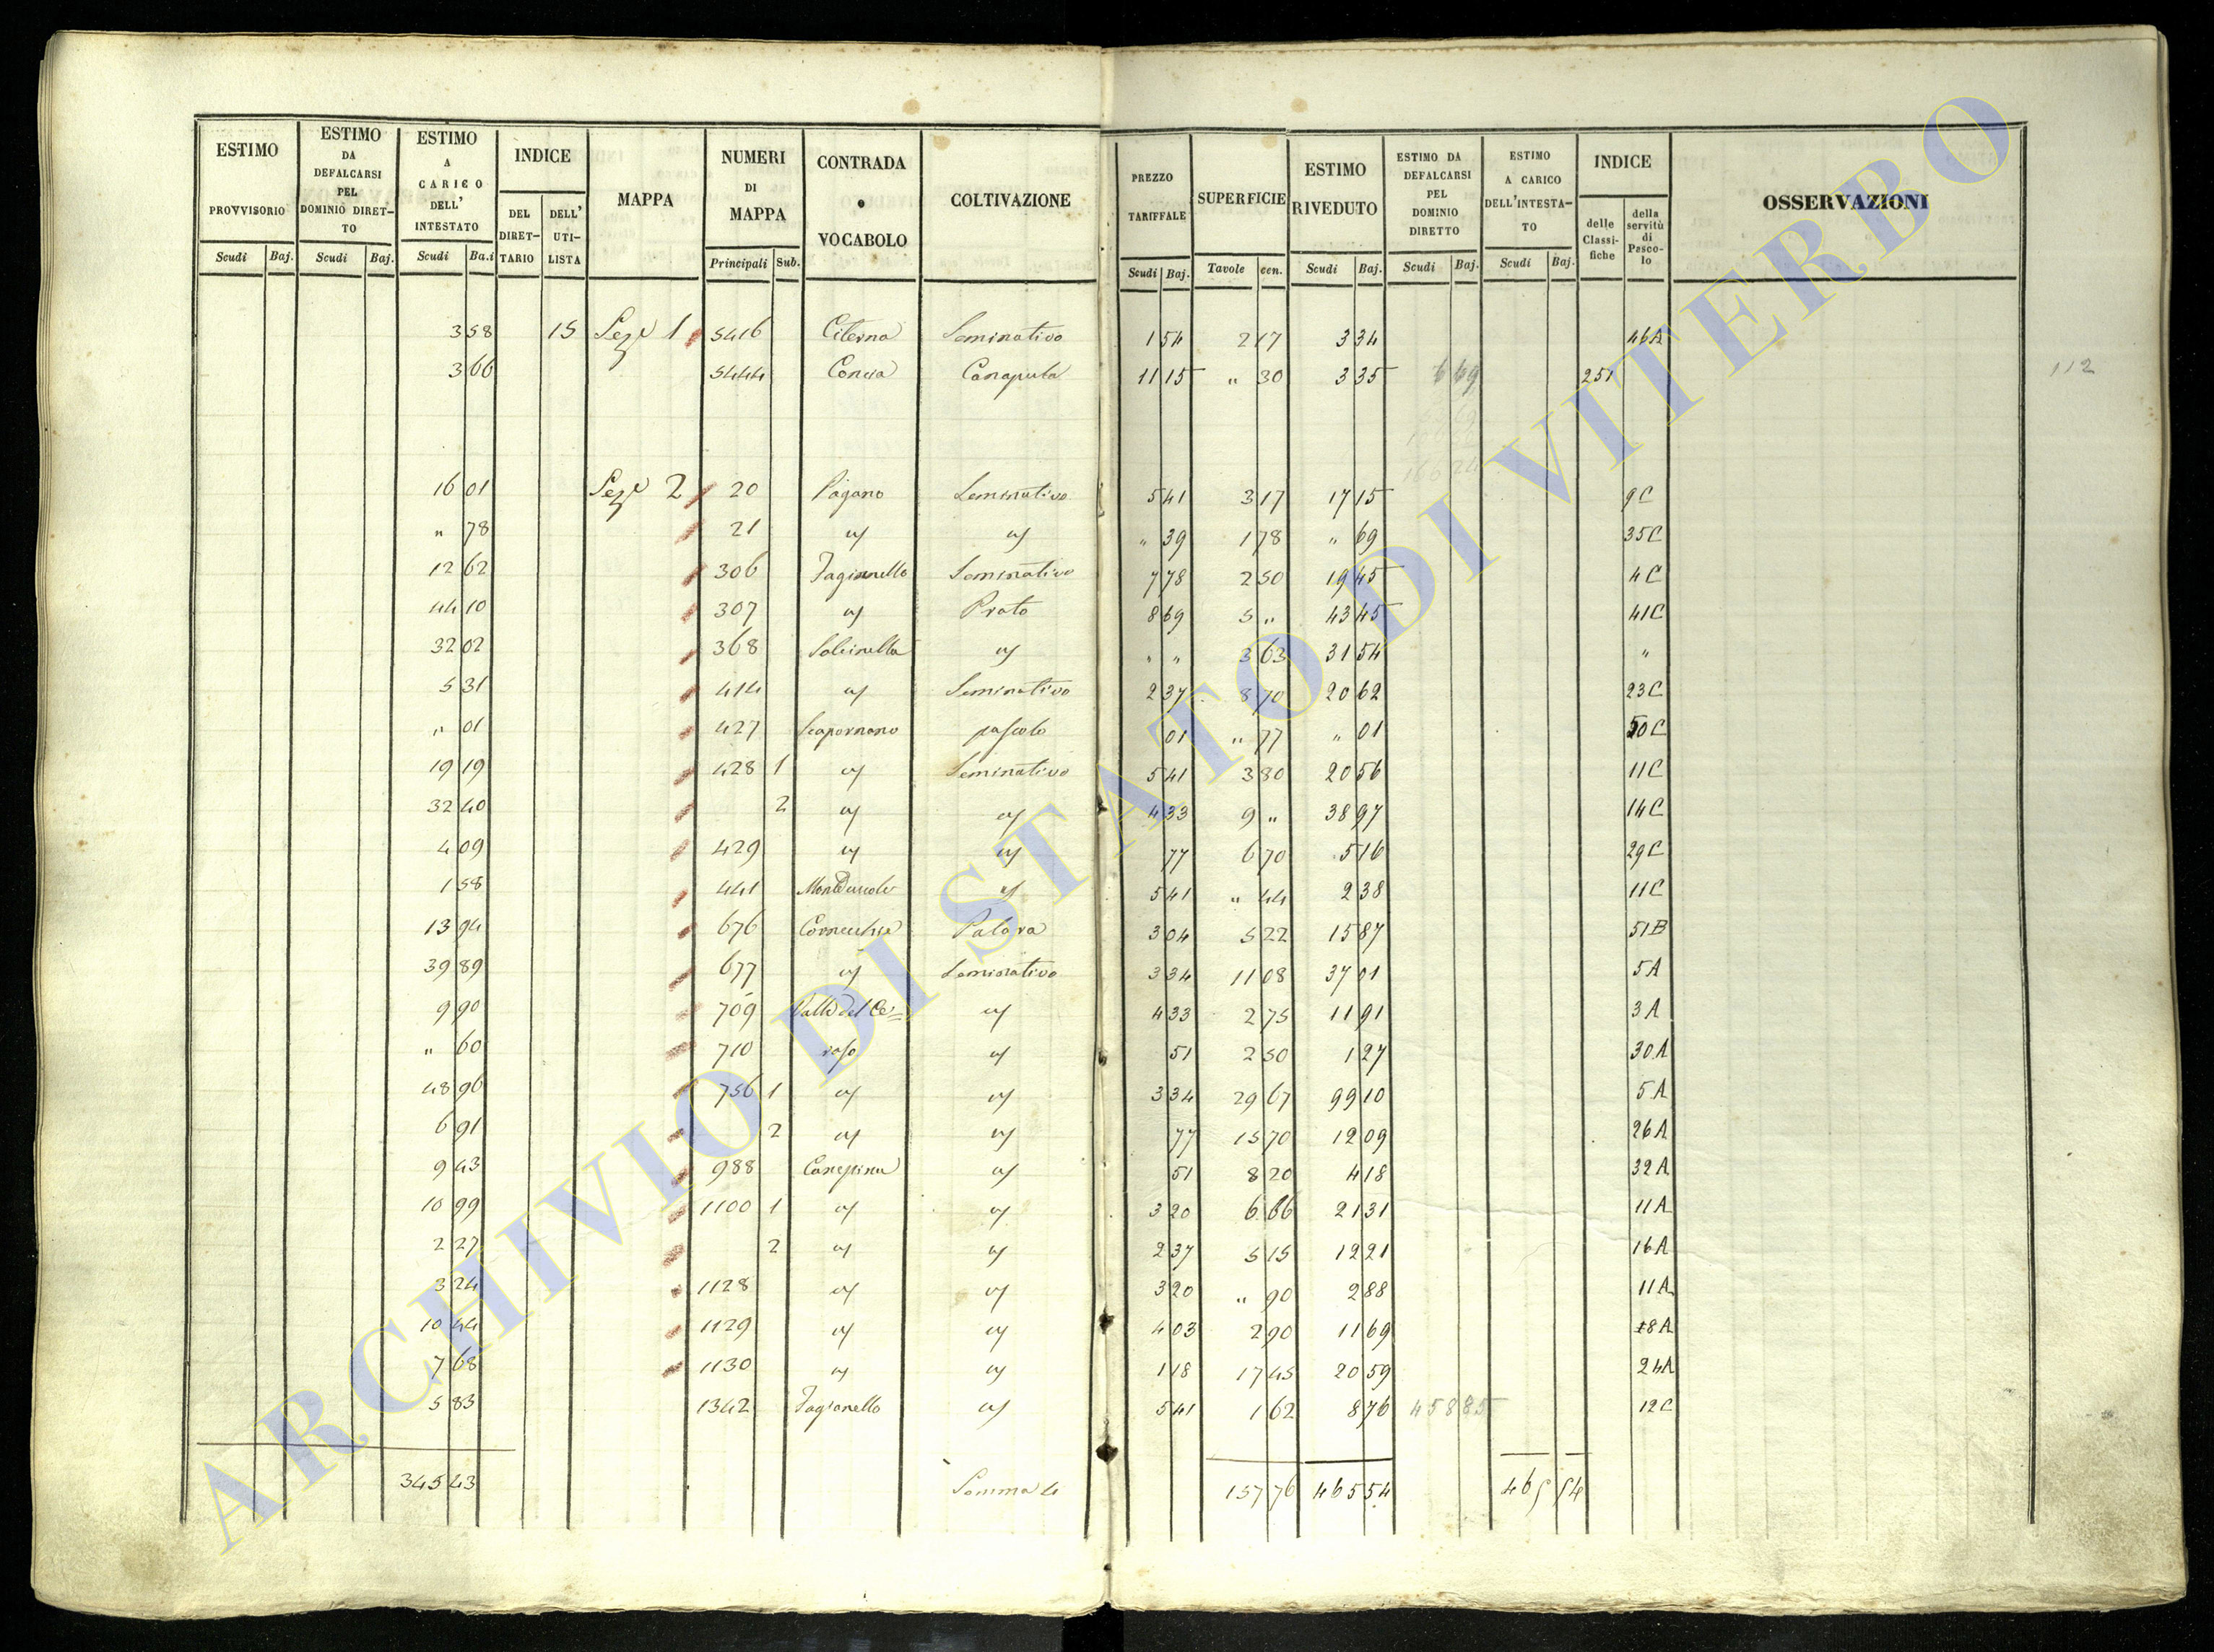 ESTIMO PROVVISORIO Scudi Baj.
ESTIMO DA DEFALCARSI PEL DOMINIO DIRETTO Scudi Baj.
ESTIMO A CARICO DELL' INTESTATO Scudi Ba.i
INDICE DEL DIRETTARIO DELL' UTILISTA
MAPPA
NUMERI DI MAPPA Principali Sub.
CONTRADA o VOCABOLO
COLTIVAZIONE
PREZZO TARIFFALE Scudi Baj.
SUPERFICIE Tavole cen.
ESTIMO RIVEDUTO Scudi Baj.
ESTIMO DA DEFALCARSI PEL DOMINIO DIRETTO Scudi Baj.
ESTIMO A CARICO DELL'INTESTATO Scudi Baj.
INDICE delle Classifiche della servitù di Pascolo
OSSERVAZIONI
3 58 15 Seze 1 5416 Citerna Seminativo 1 54 2 17 3 34 46A
3 66 5444 Concia Canaputa 11 15 " 30 3 35 6 69 251
112
16 01 Seze 2 20 Pagano Seminativo 5 41 3 17 17 15 9C
" 78 21 " 39 1 78 " 69 35C
12 62 306 Fagianello Seminativo 7 78 2 50 19 45 4C
44 10 307 Prato 8 69 5 " 43 45 41C
32 02 368 Salcinella " " 3 63 31 54 "
5 31 414 Seminativo 2 37 8 70 20 62 23C
" 01 427 Scapornano pascolo 01 " 77 " 01 50C
19 19 428 1 Seminativo 5 41 3 80 20 56 11C
32 40 2 4 33 9 " 38 97 14C
4 09 429 77 6 70 5 16 29C
1 58 441 5 41 " 44 2 38 11C
13 94 676 Cornecchie 3 04 5 22 15 87 51B
39 89 677 Seminativo 3 34 11 08 37 01 5A
9 90 709 Valle del Ce= 4 33 2 75 11 91 3A
" 60 710 raso 51 2 50 1 27 30A
48 96 756 1 3 34 29 67 99 10 5A
6 91 2 77 15 70 12 09 26A
9 43 988 Canepina 51 8 20 4 18 32A
10 99 1100 1 3 20 6 66 21 31 11A
2 27 2 2 37 5 15 12 21 16A
3 24 1128 3 20 " 90 2 88 11A
10 44 1129 4 03 2 90 11 69 8A
7 68 1130 1 18 17 45 20 59 24A
5 83 1342 Fagianello 5 41 1 62 8 76 458 85 12C
345 43 Somma 157 76 465 54 465 54
ARCHIVIO DI STATO DI VITERBO